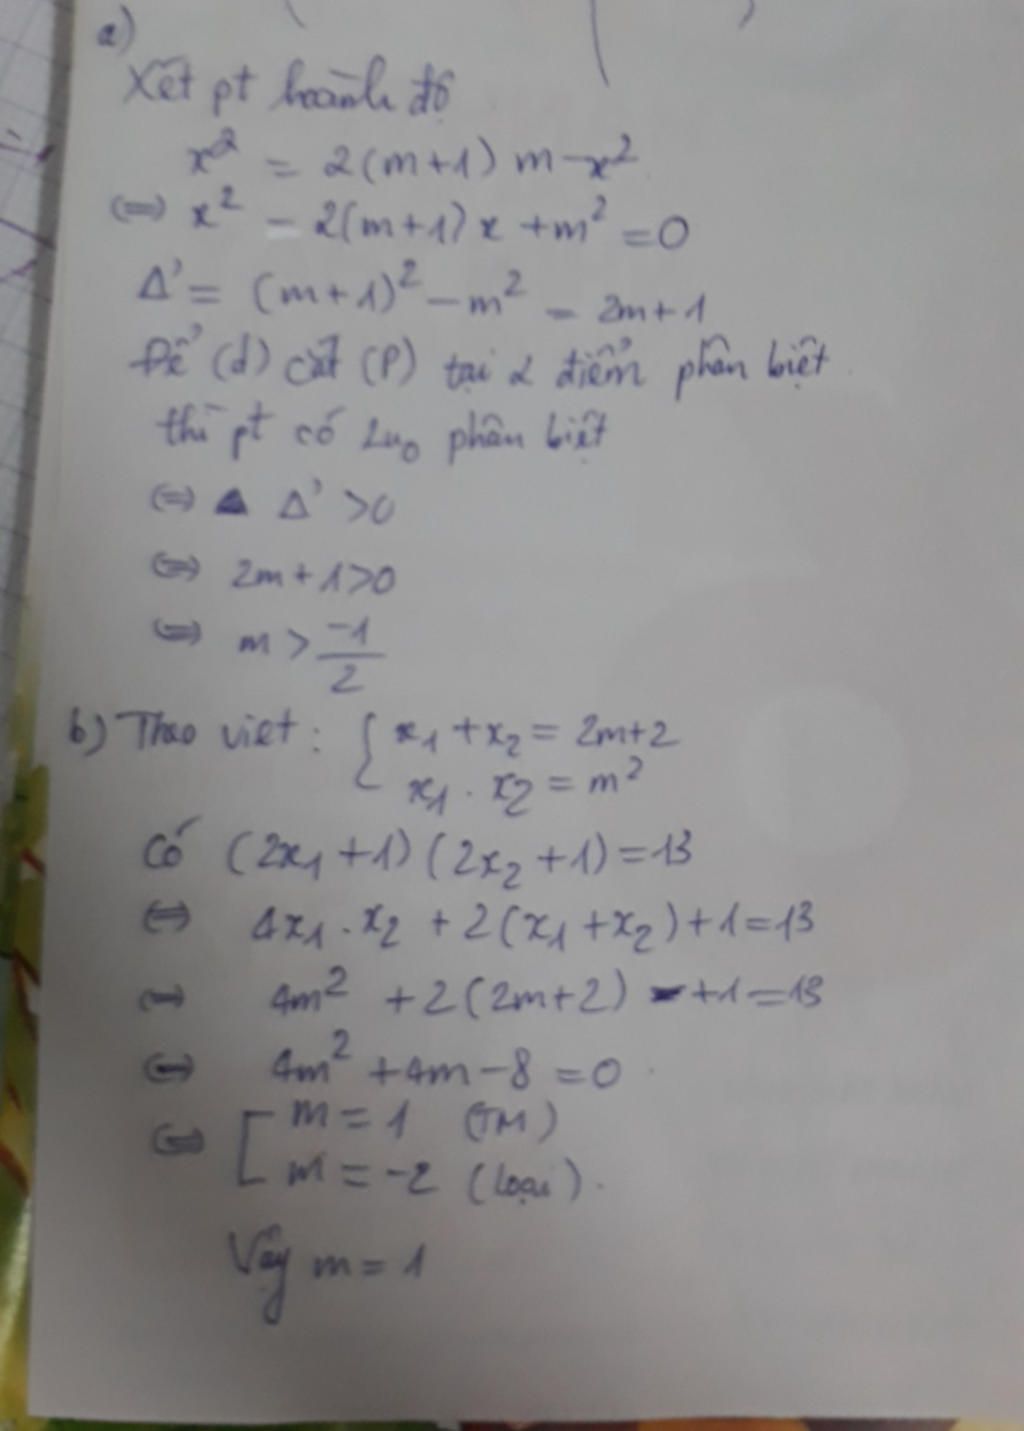 a)
Xét pt hoành độ
x² = 2(m+1) m-x²
(=) x² - 2(m+1) x + m² = 0
Δ' = (m+1)² - m² = 2m+1
Để (d) cắt (P) tại 2 điểm phân biệt
thì pt có 2no phân biệt
(=) Δ' >0
(=) 2m+1>0
(=) m > -1/2
b) Theo viet: { x₁ + x₂ = 2m+2
x₁ . x₂ = m²
Có (2x₁ +1) (2x₂ +1) = 13
(=) 4x₁ . x₂ + 2(x₁ + x₂) + 1 = 13
(=) 4m² + 2(2m+2) +1 = 13
(=) 4m² + 4m - 8 = 0
(=) [ m = 1 (TM)
m = -2 (loại).
Vậy m = 1